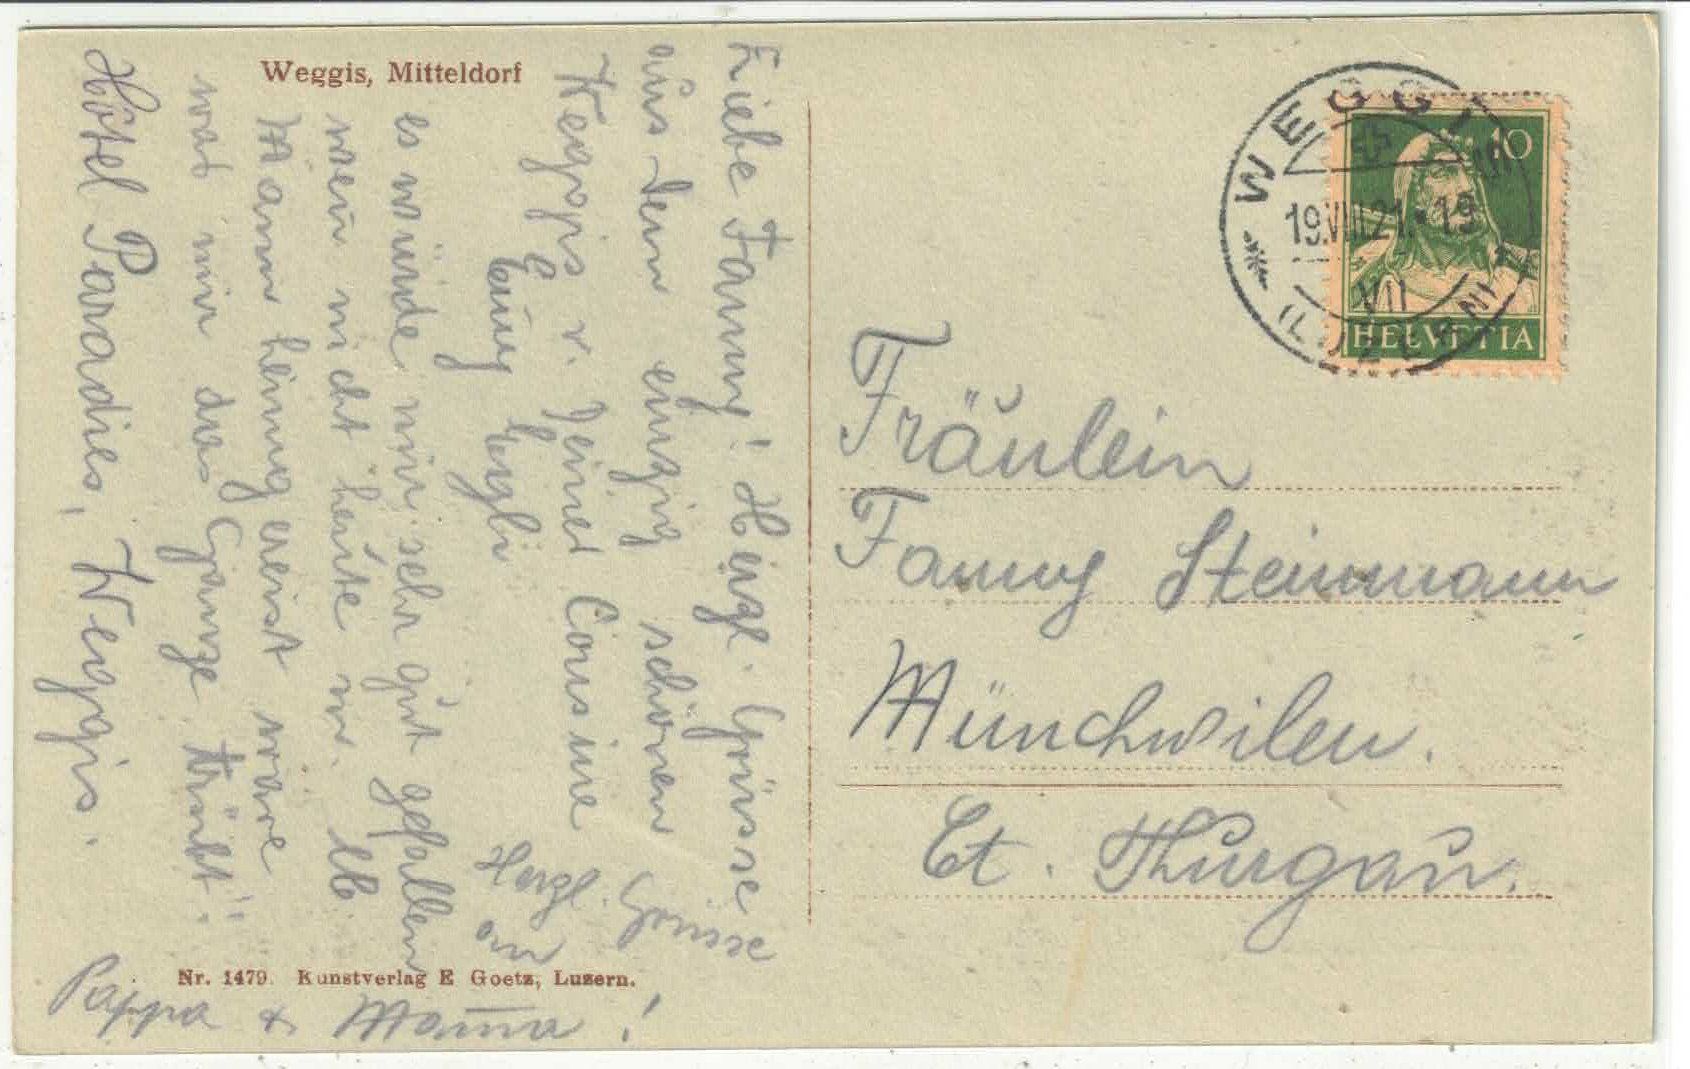 Weggis, Mitteldorf
Liebe Fanny! Herzl. Grüsse
aus dem einzig schönen
Weggis v. Deiner Cousine
Herzl. Grüsse
an
Pappa & Mama!
es würde mir sehr gut gefallen
wenn nicht heute m. lb.
Mann heimgereist wäre
was mir das Ganze trübt".
Hôtel Paradies, Weggis.
Nr. 1479. Kunstverlag E Goetz, Luzern.
WEGGIS
(LUZERN)
19.VIII.21.-19
VIII
10
HELVETIA
Fräulein
Fanny Steinmann
Münchwilen.
Ct. Thurgau.